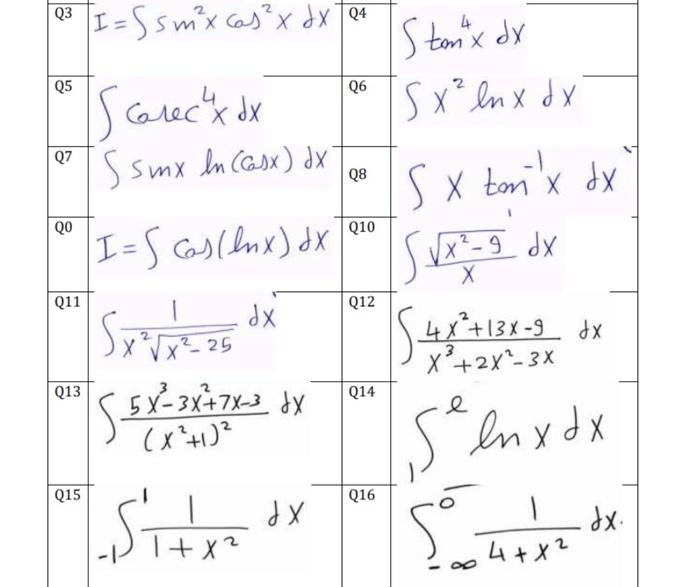 Q3 I = ∫ sin²x cos²x dx Q4 ∫ tan⁴x dx
Q5 ∫ Cosec⁴x dx Q6 ∫ x² ln x dx
Q7 ∫ sinx ln(cosx) dx Q8 ∫ x tan⁻¹x dx
Q0 I = ∫ cos(lnx) dx Q10 ∫ √(x²-9)/x dx
Q11 ∫ 1/(x²√(x²-25)) dx Q12 ∫ (4x²+13x-9)/(x³+2x²-3x) dx
Q13 ∫ (5x³-3x²+7x-3)/(x²+1)² dx Q14 ∫₁ᵉ ln x dx
Q15 ∫₋₁¹ 1/(1+x²) dx Q16 ∫₋∞⁰ 1/(4+x²) dx.